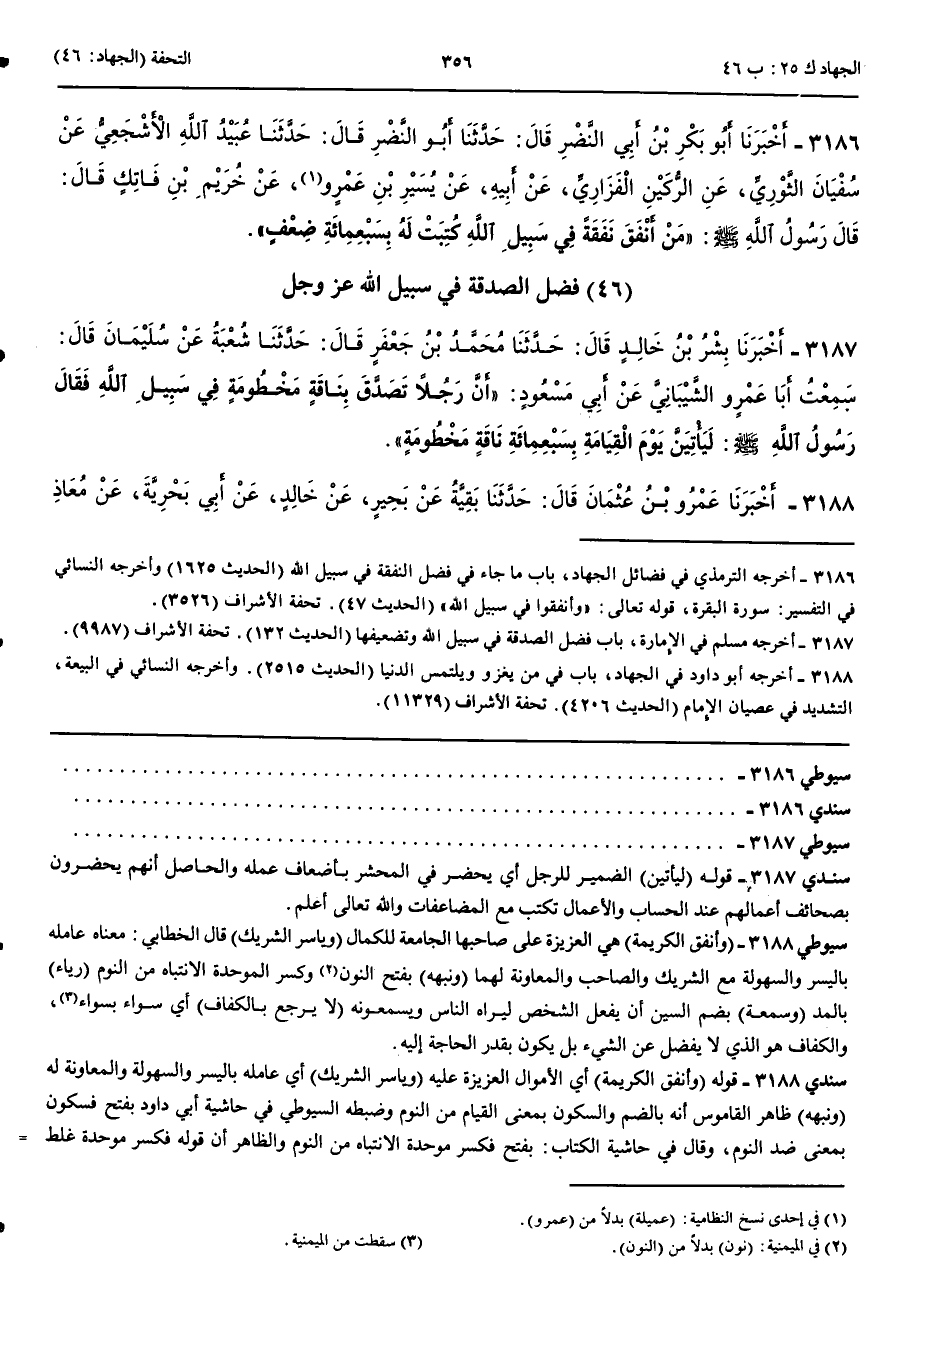 الجهاد ك ٢٥: ب ٤٦
٣٥٦
التحفة (الجهاد: ٤٦)
٣١٨٦ - أَخْبَرَنَا أَبُو بَكْرِ بْنُ أَبِي النَّضْرِ قَالَ: حَدَّثَنَا أَبُو النَّضْرِ قَالَ: حَدَّثَنَا عُبَيْدُ اللَّهِ الْأَشْجَعِيُّ عَنْ
سُفْيَانَ الثَّوْرِيِّ، عَنِ الرُّكَيْنِ الْفَزَارِيِّ، عَنْ أَبِيهِ، عَنْ يُسَيْرِ بْنِ عَمْرٍو(١)، عَنْ خُرَيْمِ بْنِ فَاتِكٍ قَالَ:
قَالَ رَسُولُ اللَّهِ ﷺ: «مَنْ أَنْفَقَ نَفَقَةً فِي سَبِيلِ اللَّهِ كُتِبَتْ لَهُ بِسَبْعِمِائَةِ ضِعْفٍ».
(٤٦) فضل الصدقة في سبيل الله عز وجل
٣١٨٧ - أَخْبَرَنَا بِشْرُ بْنُ خَالِدٍ قَالَ: حَدَّثَنَا مُحَمَّدُ بْنُ جَعْفَرٍ قَالَ: حَدَّثَنَا شُعْبَةُ عَنْ سُلَيْمَانَ قَالَ:
سَمِعْتُ أَبَا عَمْرٍو الشَّيْبَانِيَّ عَنْ أَبِي مَسْعُودٍ: «أَنَّ رَجُلًا تَصَدَّقَ بِنَاقَةٍ مَخْطُومَةٍ فِي سَبِيلِ اللَّهِ فَقَالَ
رَسُولُ اللَّهِ ﷺ: لَيَأْتِيَنَّ يَوْمَ الْقِيَامَةِ بِسَبْعِمِائَةِ نَاقَةٍ مَخْطُومَةٍ».
٣١٨٨ - أَخْبَرَنَا عَمْرُو بْنُ عُثْمَانَ قَالَ: حَدَّثَنَا بَقِيَّةُ عَنْ بَحِيرٍ، عَنْ خَالِدٍ، عَنْ أَبِي بَحْرِيَّةَ، عَنْ مُعَاذِ
٣١٨٦ - أخرجه الترمذي في فضائل الجهاد، باب ما جاء في فضل النفقة في سبيل الله (الحديث ١٦٢٥) وأخرجه النسائي
في التفسير: سورة البقرة، قوله تعالى: «وأنفقوا في سبيل الله» (الحديث ٤٧). تحفة الأشراف (٣٥٢٦).
٣١٨٧ - أخرجه مسلم في الإمارة، باب فضل الصدقة في سبيل الله وتضعيفها (الحديث ١٣٢). تحفة الأشراف (٩٩٨٧).
٣١٨٨ - أخرجه أبو داود في الجهاد، باب في من يغزو ويلتمس الدنيا (الحديث ٢٥١٥). وأخرجه النسائي في البيعة،
التشديد في عصيان الإمام (الحديث ٤٢٠٦). تحفة الأشراف (١١٣٢٩).
سيوطي ٣١٨٦ - . . . . . . . . . . . . . . . . . . . .
سندي ٣١٨٦ - . . . . . . . . . . . . . . . . . . . .
سيوطي ٣١٨٧ - . . . . . . . . . . . . . . . . . . . .
سندي ٣١٨٧ - قوله (ليأتين) الضمير للرجل أي يحضر في المحشر بأضعاف عمله والحاصل أنهم يحضرون
بصحائف أعمالهم عند الحساب والأعمال تكتب مع المضاعفات والله تعالى أعلم.
سيوطي ٣١٨٨ - (وأنفق الكريمة) هي العزيزة على صاحبها الجامعة للكمال (وياسر الشريك) قال الخطابي: معناه عامله
باليسر والسهولة مع الشريك والصاحب والمعاونة لهما (ونبهه) بفتح النون(٢) وكسر الموحدة الانتباه من النوم (رياء)
بالمد (وسمعة) بضم السين أن يفعل الشخص ليراه الناس ويسمعونه (لا يرجع بالكفاف) أي سواء بسواء(٣)،
والكفاف هو الذي لا يفضل عن الشيء بل يكون بقدر الحاجة إليه.
سندي ٣١٨٨ - قوله (وأنفق الكريمة) أي الأموال العزيزة عليه (وياسر الشريك) أي عامله باليسر والسهولة والمعاونة له
(ونبهه) ظاهر القاموس أنه بالضم والسكون بمعنى القيام من النوم وضبطه السيوطي في حاشية أبي داود بفتح فسكون
بمعنى ضد النوم، وقال في حاشية الكتاب: بفتح فكسر موحدة الانتباه من النوم والظاهر أن قوله فكسر موحدة غلط =
(١) في إحدى نسخ النظامية: (عميلة) بدلاً من (عمرو).
(٢) في الميمنية: (نون) بدلاً من (النون).
(٣) سقطت من الميمنية.